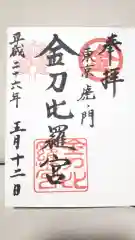 奉拝
東京虎ノ門
金刀比羅宮
平成二十六年
正月十二日